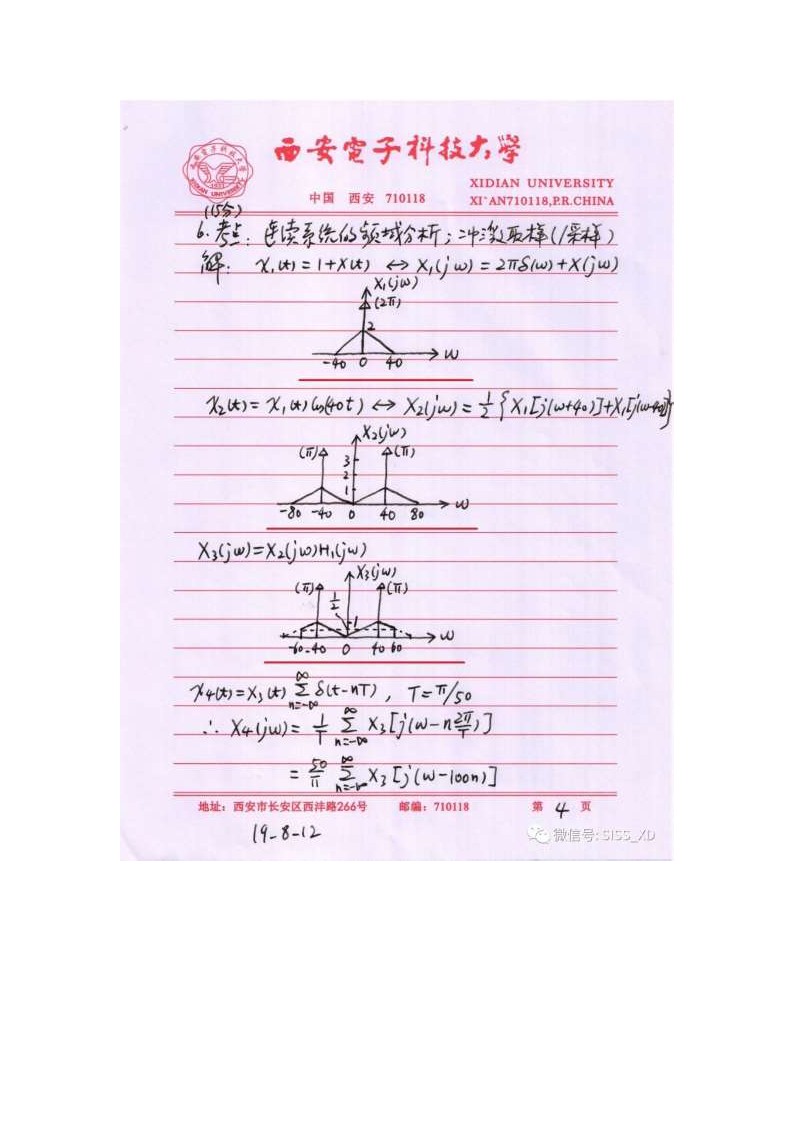 西安電子科技大學
XIDIAN UNIVERSITY
中国 西安 710118
XI`AN710118,P.R.CHINA
(15分)
6. 考点: 连续系统的频域分析; 冲激取样(/采样)
解: x₁(t) = 1+x(t) ↔ X₁(jω) = 2πδ(ω)+X(jω)
X₁(jω)
(2π)
2
-40 0 40 ω
x₂(t) = x₁(t)cos(40t) ↔ X₂(jω) = 1/2 {X₁[j(ω+40)]+X₁[j(ω-40)]}
X₂(jω)
(π) 3 (π)
2
1
-80 -40 0 40 80 ω
X₃(jω)=X₂(jω)H₁(jω)
X₃(jω)
(π) (π)
1/2 1
-60 -40 0 40 60 ω
x₄(t)=x₃(t) ∑_{n=-∞}^{∞} δ(t-nT), T=π/50
∴ X₄(jω)= 1/T ∑_{n=-∞}^{∞} X₃[j(ω-n2π/T)]
= 50/π ∑_{n=-∞}^{∞} X₃[j(ω-100n)]
地址: 西安市长安区西沣路266号 邮编: 710118 第 4 页
19-8-12
微信号: SISS_XD